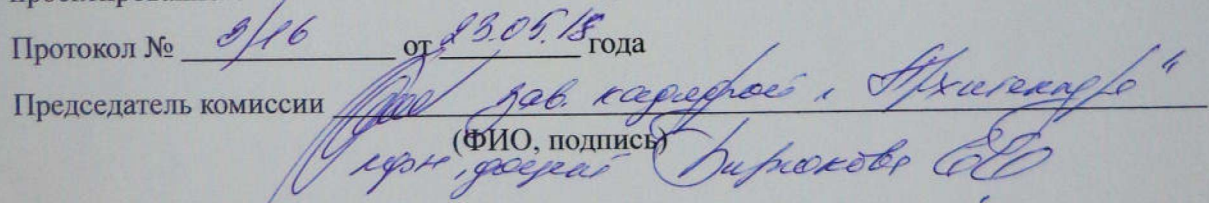 Протокол № 9/16 от 23.05.18 года
Председатель комиссии зав. кафедрой "Архитектура"
(ФИО, подпись)
доцент Бирюкова